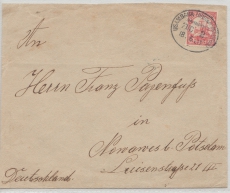 An
Herrn Franz Papenfuß
in
Nowawes b/ Potsdam
Luisenstraße 21 III
Deutschland.